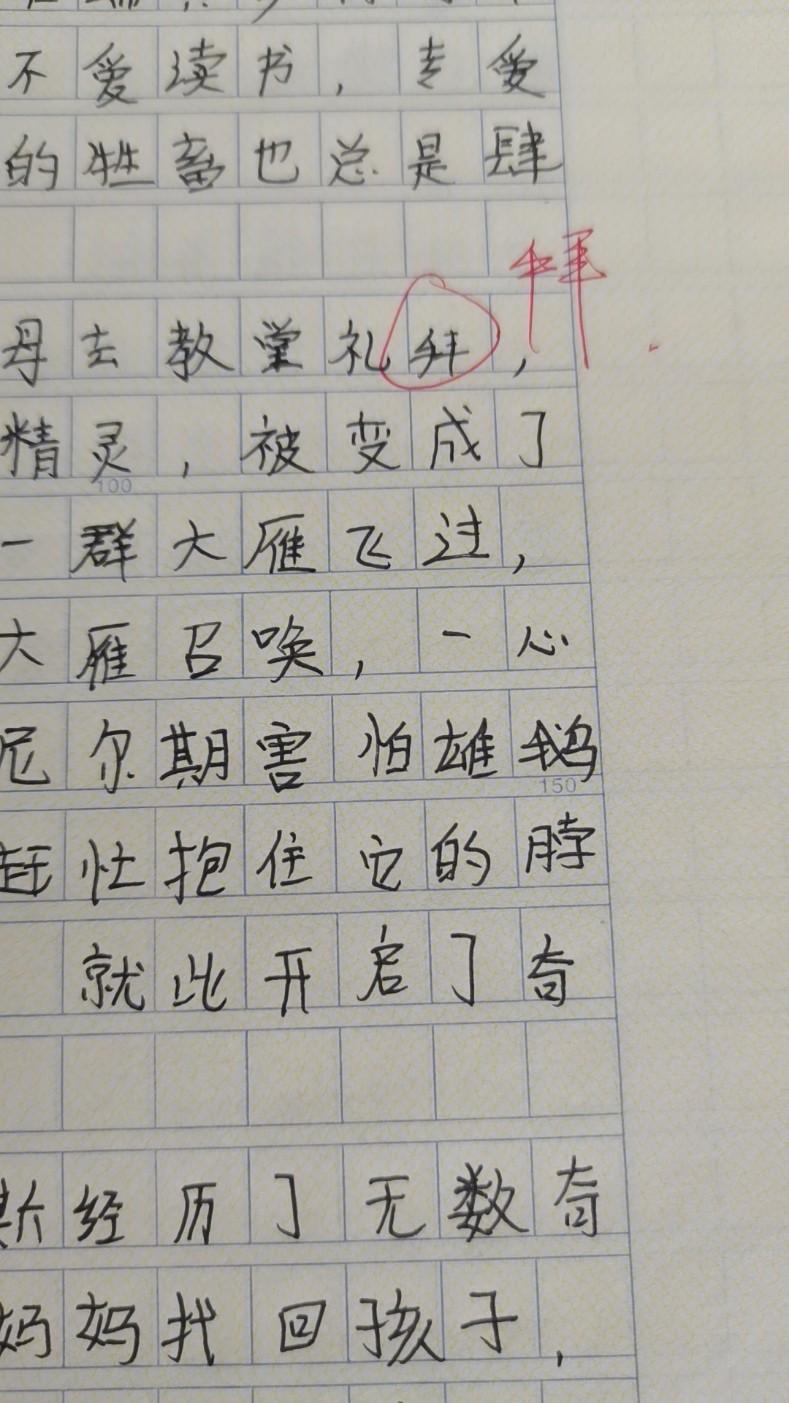 不爱读书，专爱
的牲畜也总是肆
拜
母去教堂礼拜，
精灵，被变成了
100
一群大雁飞过，
大雁召唤，一心
尼尔期害怕雄鹅
150
赶忙抱住它的脖
就此开启了奇
斯经历了无数奇
妈妈找回孩子，